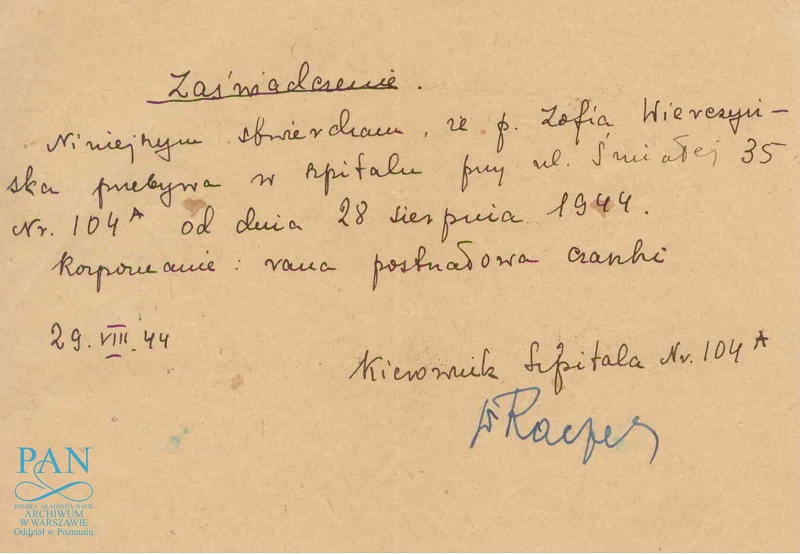 Zaświadczenie.
Niniejszym stwierdzam, że p. Zofia Wierczyń-
ska przebywa w szpitalu przy ul. Śmiałej 35
Nr. 104A od dnia 28 sierpnia 1944.
Rozpoznanie: rana postrzałowa czaszki
29. VIII. 44
Kierownik Szpitala Nr. 104A
PAN
POLSKA AKADEMIA NAUK
ARCHIWUM
W WARSZAWIE
Oddział w Poznaniu